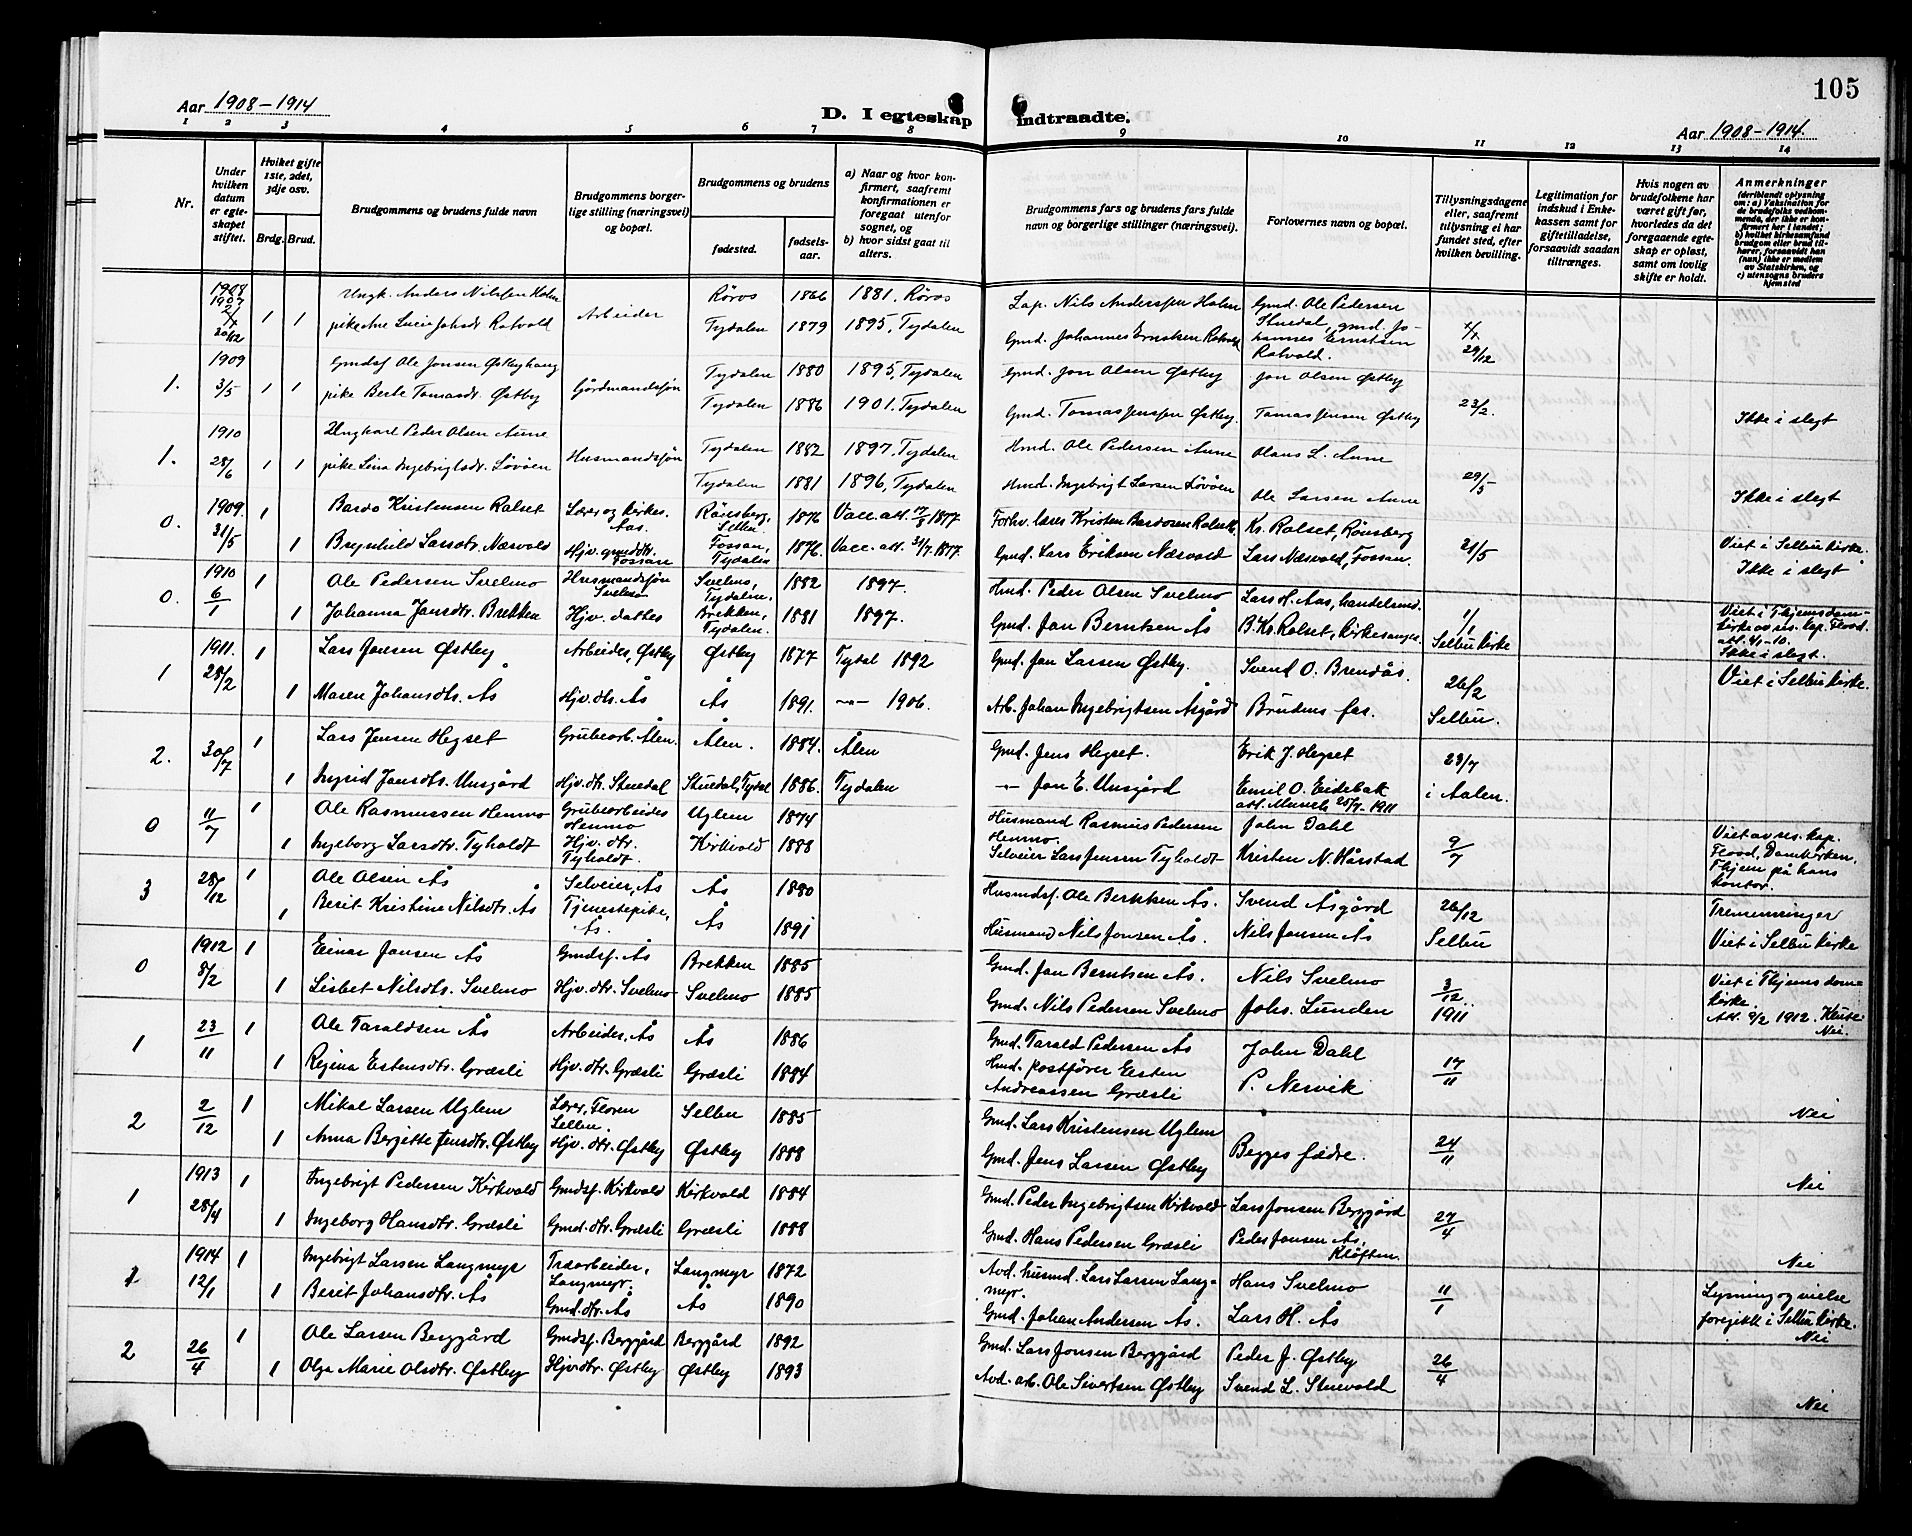 105
Aar 1908-1914
D. I egteskap indtraadte.
Aar 1908-1914
1 2 3 4 5 6 7 8 9 10 11 12 13 14
Nr.
Under hvilken datum er egteskapet stiftet.
Hvilket gifte 1ste, 2det, 3dje osv.
Brdg. Brud.
Brudgommens og brudens fulde navn
Brudgommens borgerlige stilling (næringsvei) og bopæl.
Brudgommens og brudens
fødested.
fødselsaar.
a) Naar og hvor konfirmert, saafremt konfirmationen er foregaat utenfor sognet, og
b) hvor sidst gaat til alters.
Brudgommens fars og brudens fars fulde navn og borgerlige stillinger (næringsvei).
Forlovernes navn og bopæl.
Tillysningsdagene eller, saafremt tillysning ei har fundet sted, efter hvilken bevilling.
Legitimation for indskud i Enkekassen samt for giftetilladelse, forsaavidt saadan tiltrænges.
Hvis nogen av brudefolkene har været gift før, hvorledes da det foregaaende egteskap er opløst, samt om lovlig skifte er holdt.
Anmerkninger
(deriblandt oplysning om: a) Vaksination for de brudefolks vedkommende, der ikke er konfirmert her i landet; b) hvilket kirkesamfund brudgom eller brud tilhører, forsaavidt han (hun) ikke er medlem av Statskirken, og c) utensogns bruders hjemsted
1908
1907 1 Ungk. Anders Nilssen Holm Arbeider Røros 1866 1881, Røros Gmd. Ole Pedersen
1 pike Ane Lucie Johsdr. Rotvold Tydalen 1879 1895, Tydalen Gmd. Johannes Erntsen Rotvold Stuedal, gmd. Johannes Erntsen Rotvold. 29/12
1909
1. 3/5 1 1 Gmdsf Ole Jonsen Østbyhaug Gårdmandssøn Tydalen 1880 1895, Tydalen Gmd. Jon Olsen Østby Jon Olsen Østby
pike Berte Tomasdr. Østby Tydalen 1886 1901. Tydalen Gmd. Tomas Jenssen Østby. Tomas Jensen Østby 23/2. Ikke i slegt
1910
1. 28/6 1 1 Ungkarl Peder Olsen Aune Husmandssøn Tydalen 1882 1897, Tydalen Hmd. Ole Pedersen Aune Olaus L. Aune
pike Lina Ingebrigtsdr. Løvøen Tydalen 1881 1896, Tydalen Hmd. Ingebrigt Larsen Løvøen Ole Larsen Aune 29/5 Ikke i slegt
0. 1909. 1 Bardo Kristensen Rolset Lærer og kirkes. Aas. Rönsberg, Selbu 1876 Vacc. att. 17/8 1877 Forhv. lærer Kristen Bardosen Rolseth Kr. Rolset, Rønsberg
31/5 1 Brynhild Larsdtr. Næsvold Hjv. gmddtr. Fossan Fossan, Tydalen 1876. Vacc. att. 31/7 1877. Gmd. Lars Eriksen Næsvold Lars Næsvold, Fossan. 21/5 Viet i Selbu kirke. Ikke i slegt
0. 1910 6/1 1 Ole Pedersen Svelmo Husmandssøn Svelmo Svelmo, Tydalen, 1882 1897. Hmd. Peder Olsen Svelmo Lars H. Aas, handelsmd.
1 Johanna Jonsdtr. Brekken Hjv. dattes Brekken, Tydalen. 1881 1897. Gmd. Jon Berntsen Ås B. Kr. Rolset, kirkesanger 1/1 Selbu kirke Viet i Thjemsdomkirke av res. kap. Flood. att. 6/1-10. Ikke i slegt.
1 1911. 28/2 1 Lars Jonsen Østby Arbeider, Østby Østby 1877 Tydal 1892 Gmd. Jon Larsen Østby. Svend O. Brendås. 26/2 Selbu. Viet i Selbu kirke.
1 Maren Johansdtr. Ås Hjv. dtr. Ås Ås 1891. -"- 1906. Arb. Johan Ingebrigtsen Åsgård Brudens far.
2. 30/7 1 Lars Jensen Hegset Grubearb. Ålen. Ålen. 1884. Ålen Gmd. Jens Hegset. Erik J. Hegset 23/7 i Aalen.
1 Ingrid Jonsdtr. Unsgård Hjv. dtr. Stuedal Stuedal, Tydal 1886. Tydalen -"- Jon E. Unsgård Emil O. Eidebak att. Munch 25/7-1911
0 11/7 1 Ole Rasmussen Henmo Grubearbeider Henmo Uglem 1874 Husmand Rasmus Pedersen Henmo. John Dahl 9/7 Viet av res. kap. Flood, Domkirken, Thjem på hans kontor.
1 Ingeborg Larsdtr. Tyholdt Hjv. dtr. Tyholdt. Kirkvold 1888 Selveier Lars Jensen Tyholdt Kristen N. Hårstad
3 28/12 1 Ole Olsen Ås Selveier, Ås Ås 1880 Husmdsf. Ole Berntsen Ås. Svend Åsgård 26/12 Selbu Tremenninger
1 Berit Kristine Nilsdtr. Ås Tjenestepike, Ås. Ås 1891 Husmand Nils Jonsen Ås. Nils Jonsen Ås Viet i Selbu kirke
0 1912 8/2 1 Einar Jonsen Ås Gmdsf. Ås Brekken 1885 Gmd. Jon Berntsen Ås. Nils Svelmo 3/12 1911 Viet i Thjems domkirke. Att. 9/2 1912. Nei.
1 Lisbet Nilsdtr. Svelmo Hjv. dtr. Svelmo Svelmo 1885 Gmd. Nils Pedersen Svelmo Johs. Lunden
1 23/11 1 Ole Taraldsen Ås Arbeider, Ås Ås 1886 Gmd. Tarald Pedersen Ås John Dahl 17/11
1 Regina Estensdtr. Græsli Hjv. dtr. Græsli Græsli 1884 Hmd. postfører Eesten Andreassen Græsli P. Nervik Nei
2 2/12 1 Mikal Larsen Uglem Lærer, Floren Selbu. Selbu 1885 Gmd. Lars Kristensen Uglem Begges fædre. 24/11
1 Anna Bergitte Jensdtr. Østby Hjv. dtr. Østby Østby 1888 Gmd. Jens Larsen Østby Nei
1 1913 28/4 1 Ingebrigt Pedersen Kirkvold Gmdsf. Kirkvold Kirkvold 1884 Gmd. Peder Ingebrigtsen Kirkvold Lars Jonsen Berggård 27/4
1 Ingeborg Hansdtr. Græsli Gmd. dtr. Græsli Græsli 1888 Gmd. Hans Pedersen Græsli Peder Jonsen Ås, Kløften. Nei
1 1914 12/1 1 Ingebrigt Larsen Langmyr Træarbeider, Langmyr. Langmyr 1872 Avd. husmd. Lars Larsen Langmyr. Hans Svelmo 11/1 Lysning og vielse foregikk i Selbu kirke. Nei
1 Berit Johansdtr. Ås Gmd. dtr. Ås Ås 1890 Gmd. Johan Andersen Ås. Lars H. Ås
2 26/4 1 Ole Larsen Berggård Gmdsf. Berggård Berggård 1892 Gmd. Lars Jonsen Berggård Peder J. Østby 26/4
1 Olga Marie Olsdtr. Østby Hjv. dtr. Østby Østby 1893 Avd. arb. Ole Sivertsen Østby Svend L. Stuevold Nei